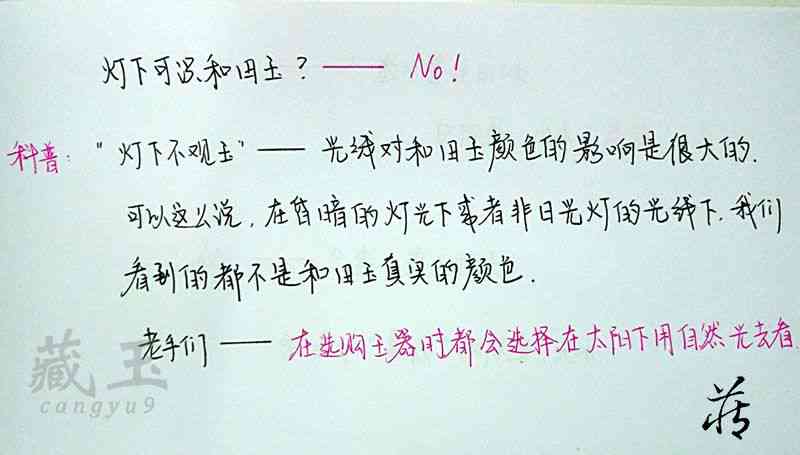 灯下可识和田玉？—— No！
科普："灯下不观玉"—— 光线对和田玉颜色的影响是很大的.
可以这么说, 在昏暗的灯光下或者非日光灯的光线下, 我们
看到的都不是和田玉真实的颜色.
老手们 —— 在选购玉器时都会选择在太阳下用自然光去看
藏玉
cangyu9